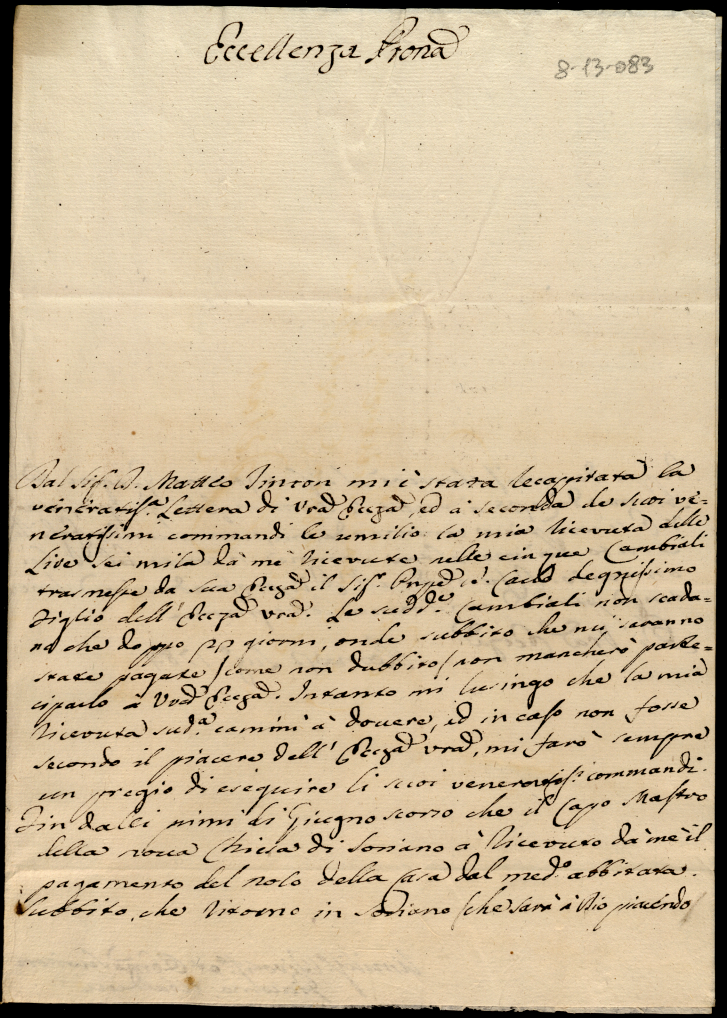 Eccellenza Prona
8-13-083
Dal Sig. D. Matteo Tinton mi è stata recapitata la
veneratiss.a Lettera di Vra Eccza, ed à seconda de suoi ve=
neratissimi commandi le umilio la mia ricevuta delle
Lire sei mila dà mè ricevute nelle cinque Cambiali
trasmesse da sua Eccza il Sig. degnissimo
Figlio dell' Eccza vra. Le sudd.e Cambiali non scada=
no che doppo 22 giorni, onde subbito che mi saranno
state pagate (come non dubbito) non mancherò parte=
ciparlo à Vra Eccza. Intanto mi lusingo che la mia
ricevuta sud.a camini à dovere, ed in caso non fosse
secondo il piacere dell' Eccza vra, mi farò sempre
un pregio di eseguire li suoi veneratiss.i commandi.
Fin dalli primi di Giugno scorso che il Capo Mastro
della nova Chiesa di Soriano à ricevuto dà mè il
pagamento del nolo della Casa dal med.o abbitata.
Subbito, che ritorno in Soriano (che sarà à Dio piacendo